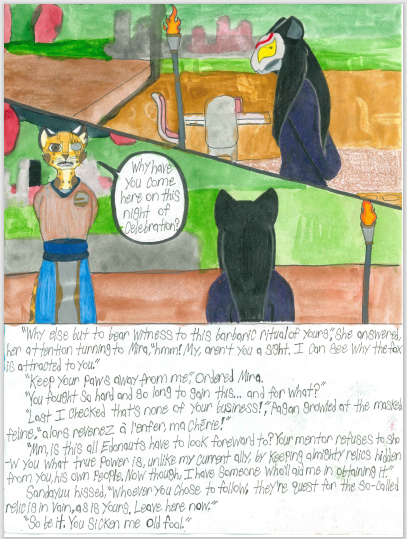 Why have
you come
here on this
night of
Celebration?
"Why else but to bear witness to this barbaric ritual of yours", she answered,
her attention turning to Mina, "hmm! My, aren't you a sight. I can see why the fox
is attracted to you."
"Keep your paws away from me", ordered Mina.
"You fought so hard and so long to gain this... and for what?"
"Last I checked that's none of your business!", Pagan growled at the masked
feline, "alors revenez à l'enfer, ma Chérie!"
"Mm, is this all Edonauts have to look foreward to? Your mentor refuses to sho
-w you what true power is, unlike my current ally, by keeping almighty relics hidden
from you, his own people. Now though, I have someone who'll aid me in obtaining it."
Sandayuu hissed, "Whoever you chose to follow, they're quest for the so-called
relic is in vain, as is yours. Leave here now."
"So be it. You sicken me old fool."